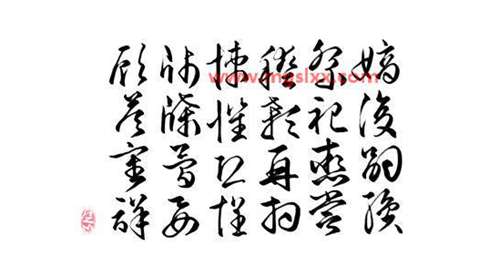 嫡後嗣續
祭祀蒸嘗
稽顙再拜
悚懼恐惶
牋牒簡要
顧答審詳